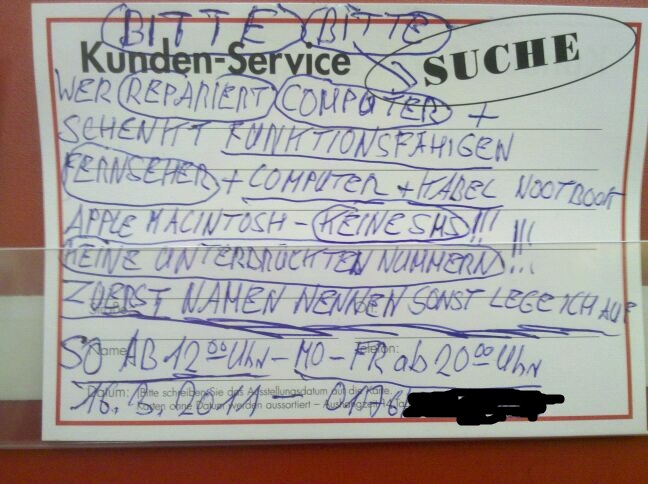 BITTE BITTE
Kunden-Service
SUCHE
WER REPARIERT COMPUTER +
SCHENKT FUNKTIONSFÄHIGEN
FERNSEHER + COMPUTER + KABEL NOOTBOOK
APPLE MACINTOSH - KEINE SMS !!!
KEINE UNTERDRÜCKTEN NUMMERN !!!
ZUERST NAMEN NENNEN SONST LEGE ICH AUF
Name:
Telefon:
SO AB 12 00 Uhr - MO - FR ab 20 00 Uhr
Datum: (Bitte schreiben Sie das Ausstellungsdatum auf die Karte.
Karten ohne Datum werden aussortiert – Aushangzeit 14
16. 3. 2011 - 0176